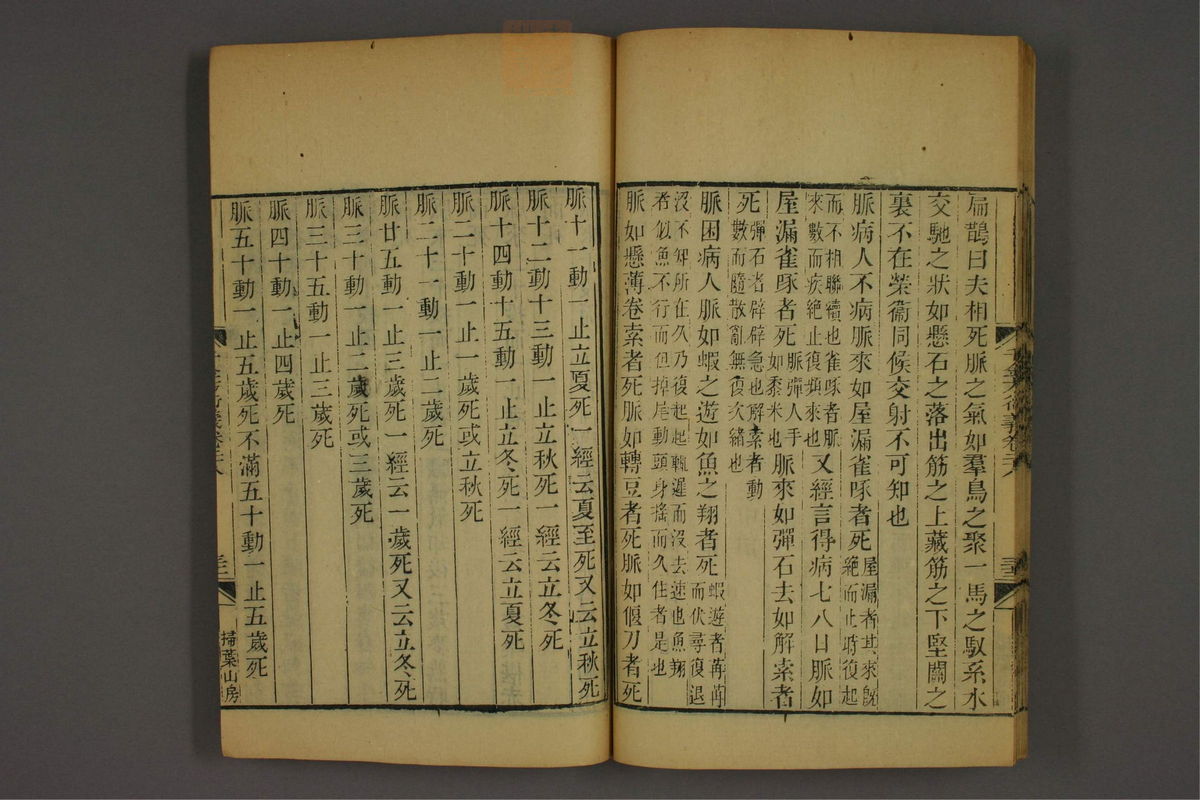 扁鵲曰夫相死脈之氣如羣鳥之聚一馬之馭系水
交馳之狀如懸石之落出筋之上藏筋之下堅關之
裏不在榮衞同候交射不可知也
脈病人不病脈來如屋漏雀啄者死屋漏者其來旣絕而止時復起
而不相聯續也雀啄者脈來數而疾絕止復頻來也又經言得病七八日脈如
屋漏雀啄者死脈彈人手如黍米也脈來如彈石去如解索者
死彈石者辟辟急也解索者動數而隨散亂無復次緒也
脈困病人脈如蝦之遊如魚之翔者死蝦遊者苒苒而伏尋復退
沒不知所在久乃復起起輒遲而沒去速也魚翔者似魚不行而但掉尾動頭身搖而久住者是也
脈如懸薄卷索者死脈如轉豆者死脈如偃刀者死
脈十一動一止立夏死一經云夏至死又云立秋死
脈十二動十三動一止立秋死一經云立冬死
脈十四動十五動一止立冬死一經云立夏死
脈二十動一止一歲死或立秋死
脈二十一動一止二歲死
脈廿五動一止三歲死一經云一歲死又云立冬死
脈三十動一止二歲死或三歲死
脈三十五動一止三歲死
脈四十動一止四歲死
脈五十動一止五歲死不滿五十動一止五歲死
掃葉山房